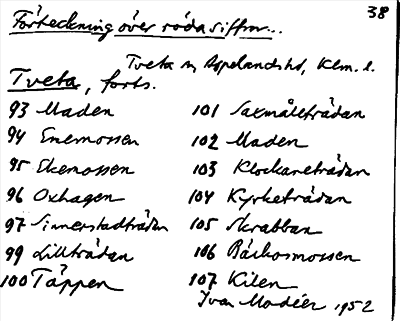 38
Förteckning över röda siffror...
Tveta sn, Aspelands hd, Klm. l.
Tveta, forts.
93 Maden
94 Enemossen
95 Ekemossen
96 Oxhagen
97 Sinnerstadträdan
99 Lillträdan
100 Täppen
101 Saxmåleträdan
102 Maden
103 Klockareträdan
104 Kyrketrädan
105 Skrabban
106 Bäckosmossen
107 Kilen
Ivar Modéer 1952